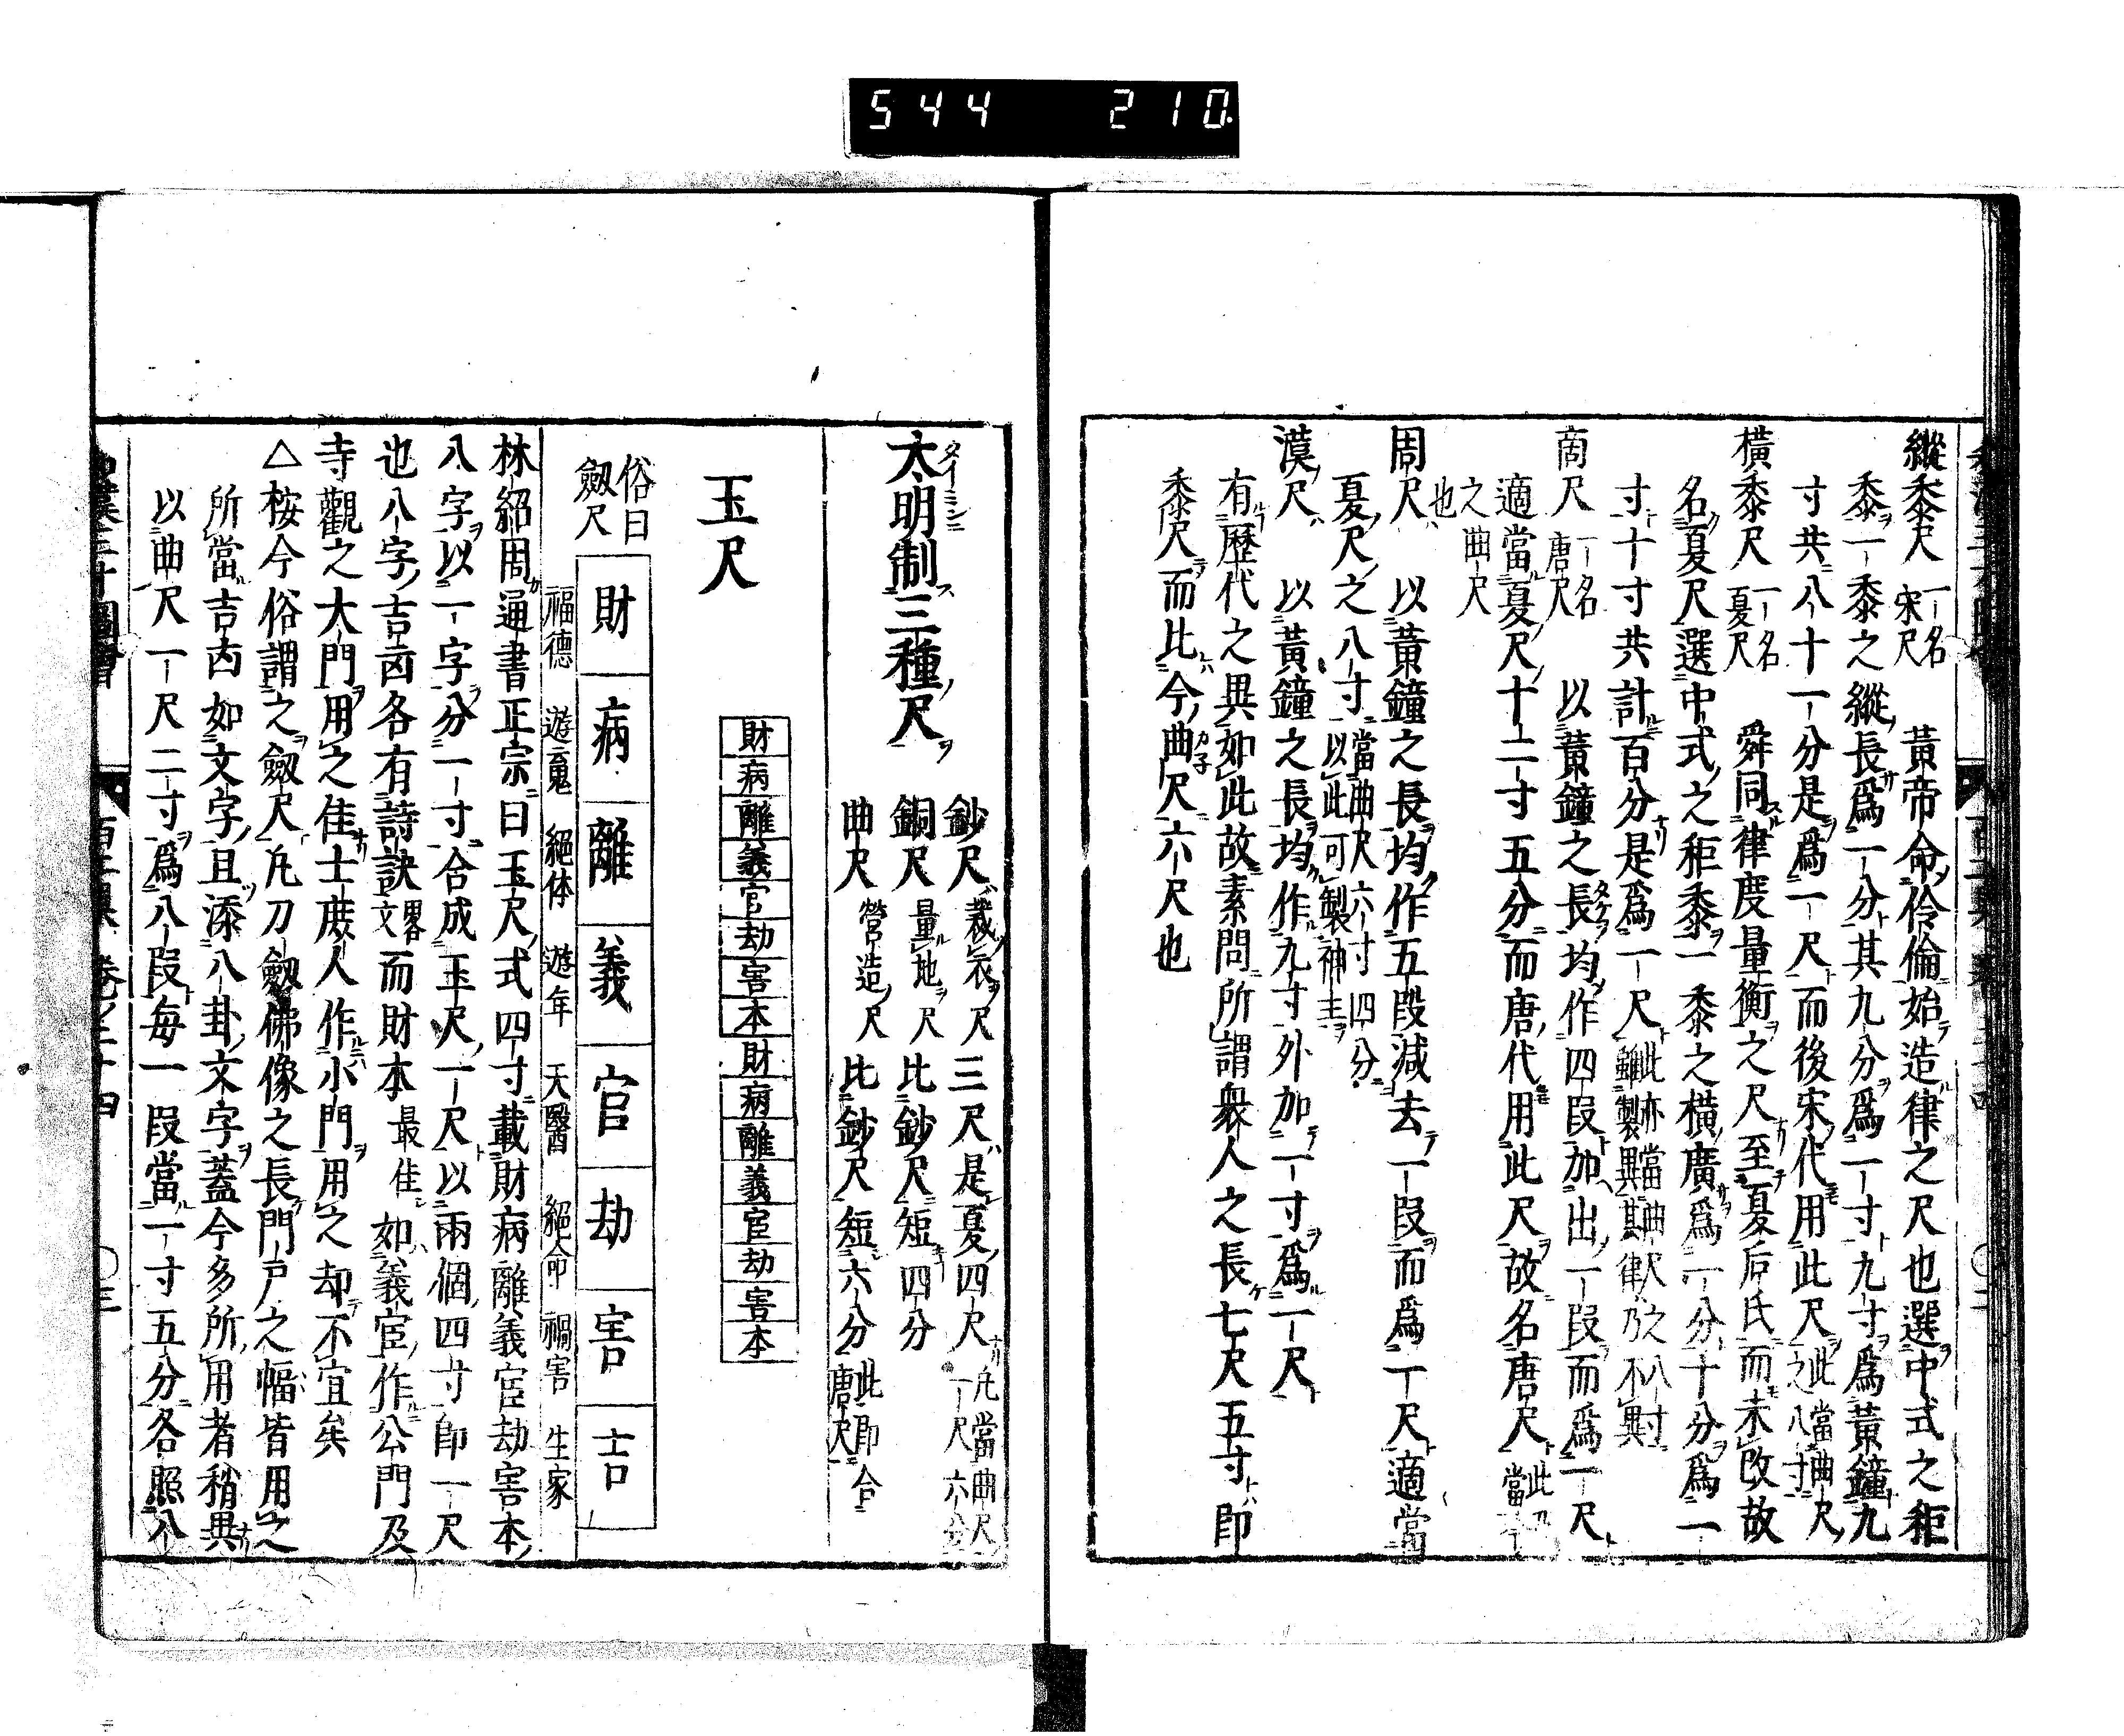 544 210
縱黍尺 一名宋尺 黃帝命伶倫始造律之尺也選中式之秬
黍一黍之縱長爲一分其九分爲一寸九寸爲黃鐘九
寸共八十一分是爲一尺而後宋代用此尺 此當曲尺之八寸
橫黍尺 一名夏尺 舜同律度量衡之尺至夏后氏而未改故
名夏尺選中式之秬黍一黍之橫廣爲一分十分爲一
寸十寸共計百分是爲一尺 此亦當曲尺之八寸雖製異其律乃不異
商尺 一名唐尺 以黃鐘之長均作四段加出一段而爲一尺
適當夏尺十二寸五分而唐代用此尺故名唐尺
之曲尺也
周尺 以黃鐘之長均作五段減去一段而爲一尺適當
夏尺之八寸 當曲尺六寸四分以此可製神主
漢尺 以黃鐘之長均作九寸外加一寸爲一尺
有歷代之異如此故素問所謂衆人之長七尺五寸即
黍尺而比今曲尺六尺也
太明制三種尺
鈔尺 裁衣尺 三尺是夏四尺
銅尺 量地尺 比鈔尺短四分
曲尺 營造尺 比鈔尺短六分 此即合唐尺
玉尺
財病離義官劫害本財病離義官劫害本
俗曰劔尺
財 病 離 義 官 劫 害 吉
福德 遊魂 絕体 遊年 天醫 絕命 禍害 生家
林紹周通書正宗曰玉尺式四寸載財病離義官劫害本
八字以一字分一寸合成玉尺一尺以兩個四寸即一尺
也八字吉凶各有詩訣 畧文 而財本最佳如義官作公門及
寺觀之大門用之佳士庶人作小門用之却不宜矣
△桉今俗謂之劔尺凡刀劔佛像之長門戸之幅皆用之
所當吉凶如文字且添八卦文字蓋今多所用者稍異
以曲尺一尺二寸爲八段每一段當一寸五分各照八